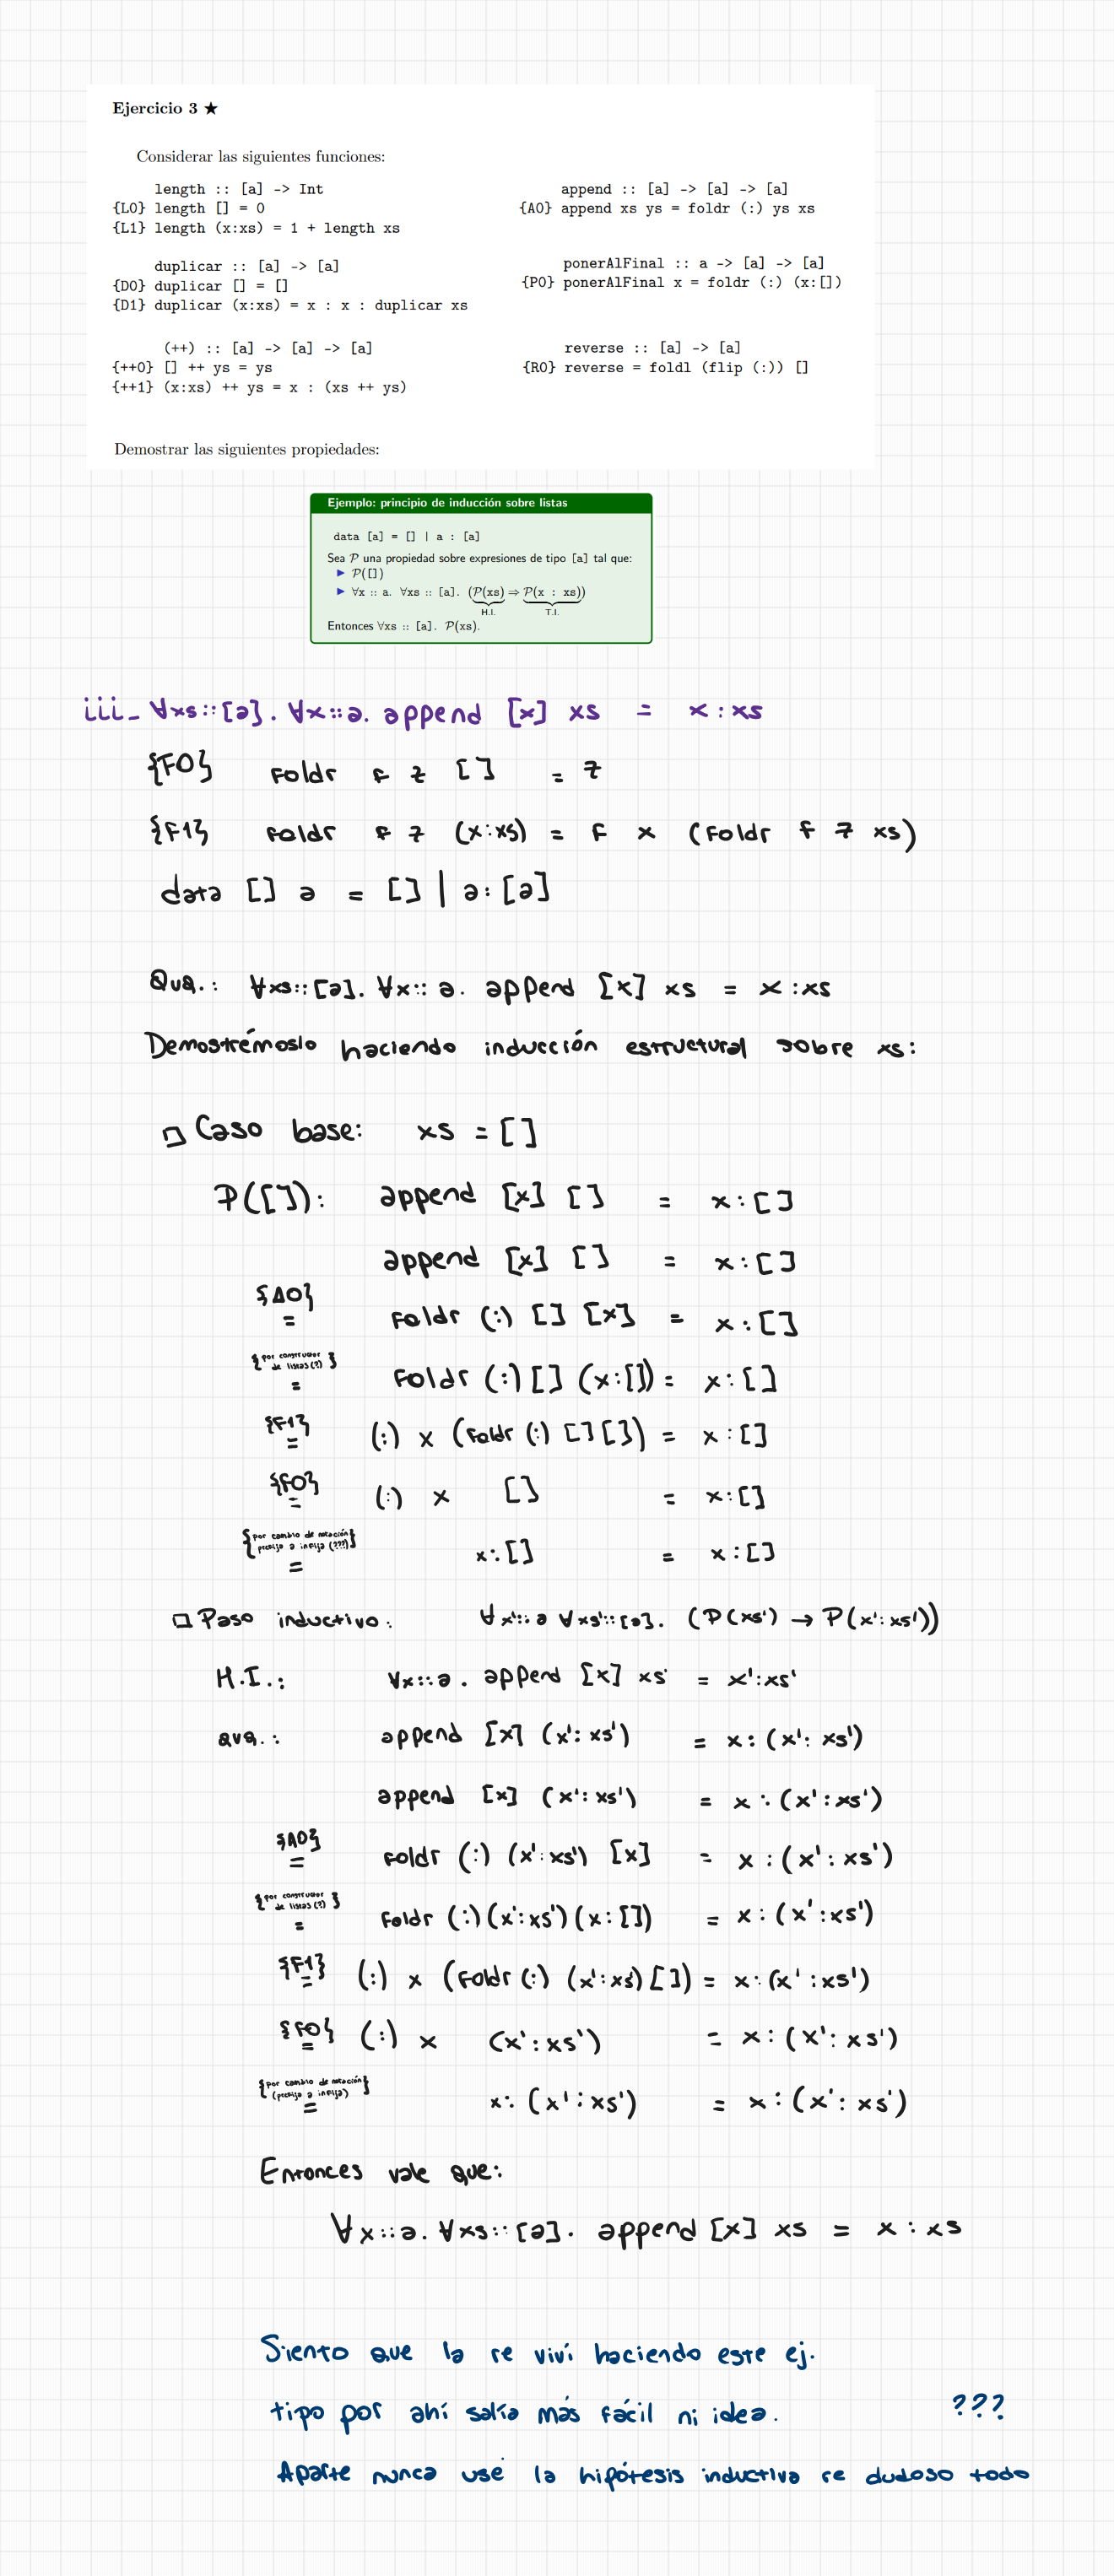 Ejercicio 3 ★
Considerar las siguientes funciones:
length :: [a] -> Int
{L0} length [] = 0
{L1} length (x:xs) = 1 + length xs
append :: [a] -> [a] -> [a]
{A0} append xs ys = foldr (:) ys xs
duplicar :: [a] -> [a]
{D0} duplicar [] = []
{D1} duplicar (x:xs) = x : x : duplicar xs
ponerAlFinal :: a -> [a] -> [a]
{P0} ponerAlFinal x = foldr (:) (x:[])
(++) :: [a] -> [a] -> [a]
{++0} [] ++ ys = ys
{++1} (x:xs) ++ ys = x : (xs ++ ys)
reverse :: [a] -> [a]
{R0} reverse = foldl (flip (:)) []
Demostrar las siguientes propiedades:
Ejemplo: principio de inducción sobre listas
data [a] = [] | a : [a]
Sea P una propiedad sobre expresiones de tipo [a] tal que:
▶ P([])
▶ ∀x :: a. ∀xs :: [a]. (P(xs) ⇒ P(x : xs))
H.I. T.I.
Entonces ∀xs :: [a]. P(xs).
iii_ ∀xs::[a]. ∀x::a. append [x] xs = x:xs
{F0} foldr f z [] = z
{F1} foldr f z (x:xs) = f x (foldr f z xs)
data [] a = [] | a:[a]
Qvq.: ∀xs::[a]. ∀x::a. append [x] xs = x:xs
Demostrémoslo haciendo inducción estructural sobre xs:
□ Caso base: xs = []
P([]): append [x] [] = x:[]
append [x] [] = x:[]
{A0} = foldr (:) [] [x] = x:[]
{por constructor de listas(?)} = foldr (:) [] (x:[]) = x:[]
{F1} = (:) x (foldr (:) [] []) = x:[]
{F0} = (:) x [] = x:[]
{por cambio de notación prefija a infija (???)} = x:[] = x:[]
□ Paso inductivo: ∀x'::a ∀xs'::[a]. (P(xs') → P(x':xs'))
H.I.: ∀x::a. append [x] xs' = x':xs'
qvq.: append [x] (x':xs') = x:(x':xs')
append [x] (x':xs') = x:(x':xs')
{A0} = foldr (:) (x':xs') [x] = x:(x':xs')
{por constructor de listas(?)} = foldr (:) (x':xs') (x:[]) = x:(x':xs')
{F1} = (:) x (foldr (:) (x':xs') []) = x:(x':xs')
{F0} = (:) x (x':xs') = x:(x':xs')
{por cambio de notación (prefija a infija)} = x:(x':xs') = x:(x':xs')
Entonces vale que:
∀x::a. ∀xs::[a]. append [x] xs = x:xs
Siento que la re viví haciendo este ej.
tipo por ahí salía más fácil ni idea. ???
Aparte nunca usé la hipótesis inductiva re dudoso todo